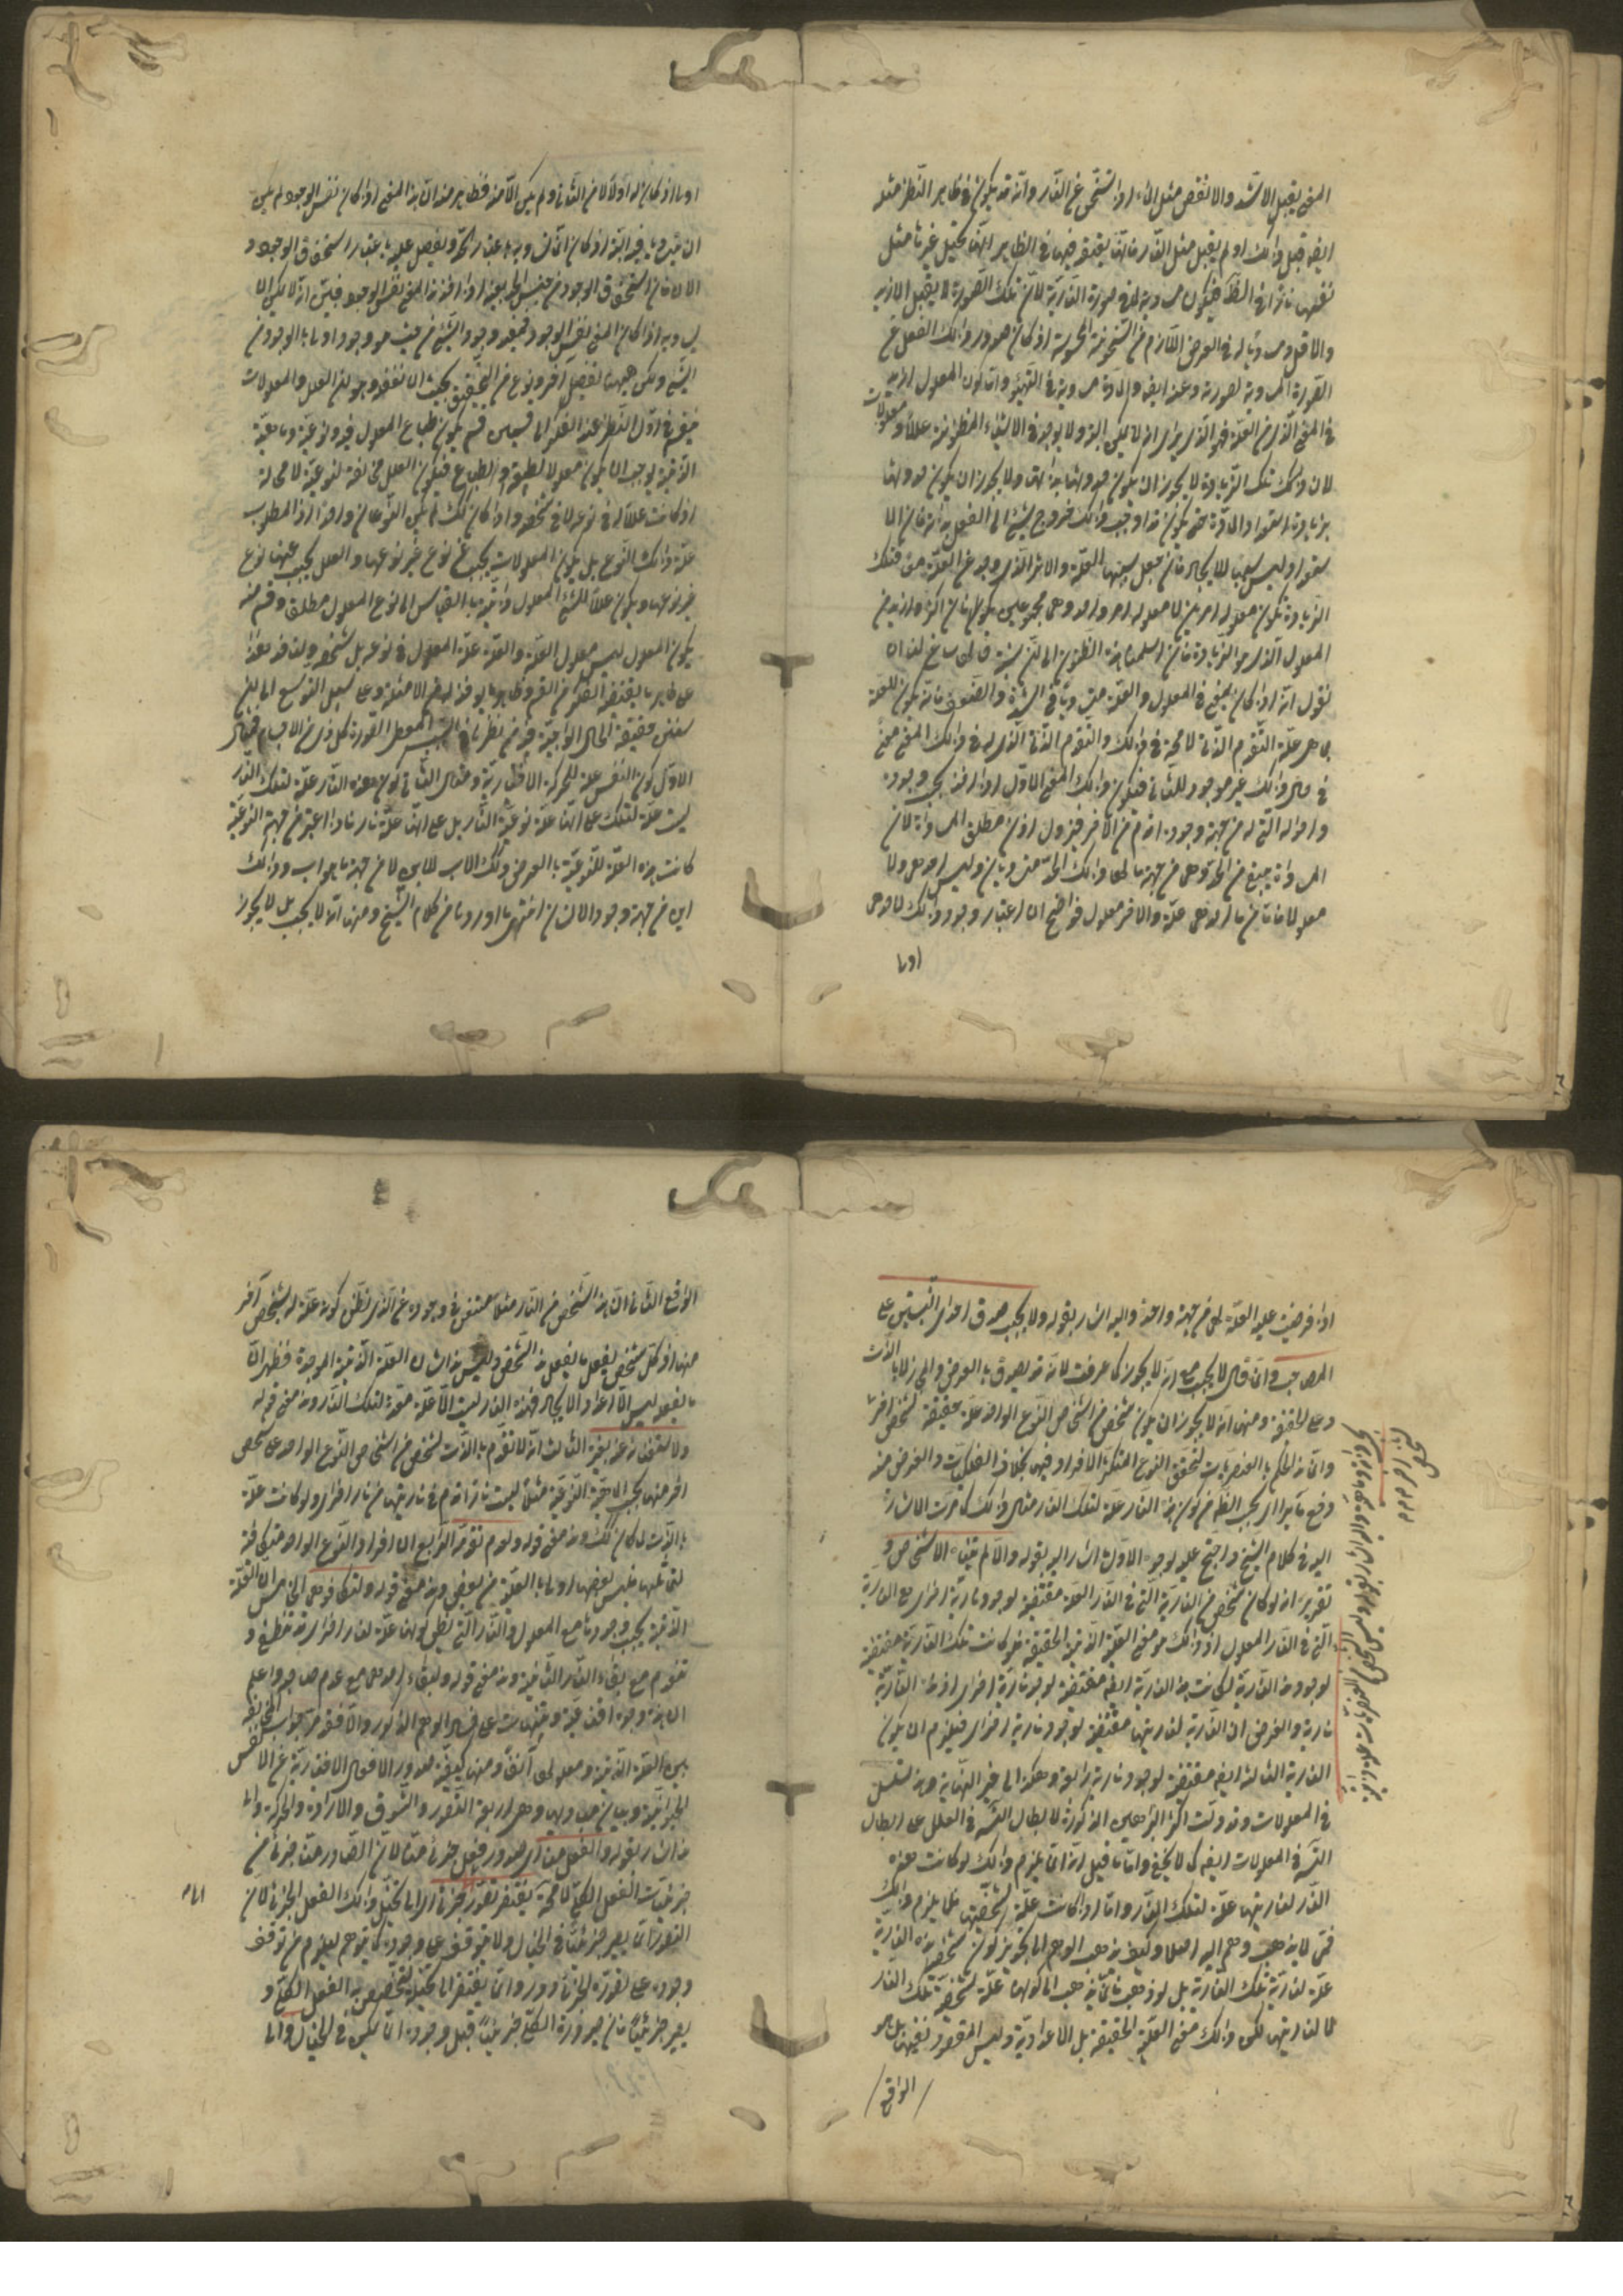 المعنى يقبل الاشد والانقص مثل الماء اذا تسخن عن النار وانه قد يكون في ظاهر النظر مثله
ايضا قبل ذلك او لم يقبل مثل النار فانها يعتقد فيها في الظاهر انها تحيل غيرها مثل
نفسها نارا في الظاهر فيكون مساوية لها في صورة النارية لان تلك الصورة لا يقبل الازيد
والاقل ومساويا له في العرض اللازم من السخونة المحسوسة اذ كان صدور ذلك الفعل عن
الصورة المساوية لصورته وعنه ايضا والمادة مساوية في التهيؤ واما كون المعلول ازيد
في المعنى الذي من العلة فهو الذي يرى انه لا يمكن البتة ولا يوجد في الاشياء المظنونة عللا ومعلولات
لان تلك الزيادة لا يجوز ان يكون حدوثها بذاتها ولا يجوز ان يكون حدوثها
بزيادة استعداد المادة حتى يكون قد اوجب ذلك خروج الشيء الى الفعل بذاته فان الا
ستعداد ليس سببا للايجاد فان جعل سببها العلة والاثر الذي وجد عن العلة معا فتلك
الزيادة تكون معلولة امرين لا معلولة امر واحد وهما مجموعين يكونان اكثر وازيد من
المعلول الذي هو الزيادة فان سلمنا هذه الظنون الى ان نستبرئ حالها ساغ لنا ان
نقول انه اذا كان المعنى في المعلول والعلة متساويا في الشدة والضعف فانه يكون للعلة
بما هي علة التقدم الذاتي لا محالة في ذلك والتقدم الذاتي الذي له في ذلك المعنى معنى
في حال ذلك غير موجود للثاني فيكون ذلك المعنى الاول اذا اخذ بحسب وجوده
واحواله التي له من جهة وجوده اقدم من الاخر فيزول اذن مطلق المساواة لان
المساواة يبقى في الحد وهما من جهة ما لهما ذلك الحد متساويان وليس احدهما علة ولا
معلولا فاما من جهة ما احدهما علة والاخر معلول فواضح ان اعتبار وجود ذلك لاحدهما
اولا
اولا اذ كان له اولا لا من الثاني ولم يكن الا منه فظاهر منه ان هذا المعنى اذا كان نفس الوجود لم يمكن
ان يتساويا فيه البتة اذ كان انما يساويه باعتبار الحد ويفضل عليه باعتبار استحقاق الوجود و
الآن فان استحقاق الوجود من جنس الحد بعينه اذا اخذ هذا المعنى نفس الوجود فبين انه لا يمكن ان
يساويه اذا كان المعنى نفس الوجود فمفيد وجود الشيء من حيث هو وجود اولى بالوجود من
الشيء ولكن ههنا تفصيل اخر بنوع من التحقيق يجب ان نغفله وهو ان العلل والمعلولات
ينقسم في اول النظر عند التفكر الى قسمين قسم يكون طباع المعلول فيه ونوعيته وماهيته
الذاتية يوجب ان يكون معلولا لطبيعة او لطبائع فيكون العلل مخالفة لنوعيته لا محالة
اذ كانت عللا له في نوعه لا في شخصه واذا كان كذلك لم يكن النوعان واحدا اذ المطلوب
علة ذلك النوع بل يكون المعلولات يجب عن نوع غير نوعها والعلل يجب عنها نوع
غير نوعها ويكون عللا للشيء المعلول ذاتية بالقياس الى نوع المعلول مطلقا وقسم منه
يكون المعلول ليس معلول العلة والعلة علة المعلول في نوعه بل في شخصه ولنأخذ هذا
على ظاهر ما يقتضيه الفكر من القسم وظاهر ما يوجد له من الامثلة وعلى سبيل التوسع الى ان
سنبين حقيقة الحال الواجبة فيه من نظرنا في السبب المعطي لصورة كل ذي صورة من الاجسام فمثال
الاول كون النفس علة للحركة الاختيارية ومثال الثاني كون هذه النار علة لتلك النار
ليست علة لتلك على انها علة نوعية النار بل على انها علة نار ما فاذا اعتبر من جهة النوعية
كانت هذه العلة للنوعية بالعرض وكذلك الاب للابن لا من جهة ما هو اب وذلك
ابن من جهة وجود الانسان انتهى ما اوردنا من كلام الشيخ ومنها انه لا يجب بل لا يجوز
اذا فرضت علية العلة لهما من جهة واحدة واليه اشار بقوله ولا يجب صدق احدى النسبتين على
المصاحب وانما قال لا يجب مع انه لا يجوز كما عرفت لانه قد يصدق بالعرض والمجاز لا بالذات
وعلى الحقيقة ومنها انه لا يجوز ان يكون شخص من اشخاص النوع الواحد علة حقيقة لشخص اخر منه
وانما خص الحكم بالعنصريات لتحقق النوع المتكثر الافراد فيها بخلاف الفلكيات والغرض منه
دفع ما يتراءى بحسب الظاهر من كون هذه النار علة لتلك النار مثلا وذلك كما مرت الاشارة
اليه في كلام الشيخ واحتج عليه بوجوه الاول ما اشار اليه بقوله والا لم تتناه الاشخاص و
تقريره انه لو كان شخص من النارية التي في النار العلة مقتضية لوجود نارية اخرى مع النارية
التي في النار المعلول اذ ذلك هو معنى العلية الذاتية الحقيقية فلو كانت تلك النارية مقتضية
لوجود هذه النارية لكانت هذه النارية ايضا مقتضية لوجود نارية اخرى اذ هذه النارية
نارية والغرض ان النارية لناريتها مقتضية لوجود نارية اخرى فيلزم ان يكون
النارية الثالثة ايضا مقتضية لوجود نارية رابعة وهكذا الى غير النهاية وهذا تسلسل
في المعلولات وقد دلت اكثر البراهين المذكورة لابطال التسلسل في العلل على ابطال
التسلسل في المعلولات ايضا كما لا يخفى واما ما قيل انه انما يلزم ذلك لو كانت هذه
النار لناريتها علة لتلك النار واما اذا كانت علة لشخصيتها فلا يلزم ذلك
فمما لا يذهب وهم اليه اصلا وكيف يذهب الوهم الى تجويز كون شخصية هذه النارية
علة لنارية تلك النارية بل لو ذهب فانما يذهب الى كونها علة لشخصية تلك النار
لا لناريتها لكن ذلك معنى العلية الحقيقية بل الاعدادية وليس المقصود نفيها بل هو
الواقع
الواقع الثاني ان هذا الشخص من النار مثلا مستغن في وجوده عن الذي يظن كونه علة له بشخص آخر
منها اذ كل شخص يفعل ما يفعل هذا الشخص وليس هذا شأن العلة الذاتية الموجدة فظهر ان
ما يفعله ليس الا الاعداد لا الايجاد فهذه النار ليست الا علة معدة لتلك النار وهذا معنى قوله
ولاستغنائه عنه بغيره الثالث انه لا تقدم بالذات لشخص من اشخاص النوع الواحد على شخص
اخر منها بحسب الماهية النوعية مثلا ليست نار اقدم في ناريتها من نار اخرى ولو كانت علة
بالذات لكان كذلك وهذا معنى قوله ولعدم تقدمه الرابع ان افراد النوع الواحد متكافئة
لتماثلها فليس بعضها اولى بالعلية من بعض وهذا معنى قوله ولتكافؤهما الخامس ان العلة
الذاتية يجب وجودها مع المعلول والنار التي يظن كونها علة لنار اخرى قد تنطفئ و
تنعدم مع بقاء النار الثانية وهذا معنى قوله ولبقاء احدهما مع عدم صاحبه واعلم
ان هذه وجوه اقناعية وتنبيهات على فساد الوهم المذكور والا فقد مر جواب التحقيق
بين العلة الذاتية ومعلولها آنفا ومنها كيفية صدور الافعال الاختيارية عن الانفس
الحيوانية وبيان مباديها وهي اربعة التصور والشوق والارادة والحركة والى
هذا اشار بقوله والفعل منا اي صدور فعل جزئي منا لان الصادر منا جزئي من
جزئيات الفعل الكلي لا محالة يفتقر الى تصور جزئي اي الى تخيل ذلك الفعل الجزئي لان
التصور انما يصير جزئيا في الخيال ولا يتوقف على وجوده كما يتوهم ليلزم من توقف
وجوده على تصوره الجزئي دور وانما يفتقر الى تخيله ليتخصص به الفعل الكلي و
يصير جزئيا فان صيرورة الكلي جزئيا قبل وجوده انما يمكن في الخيال واما